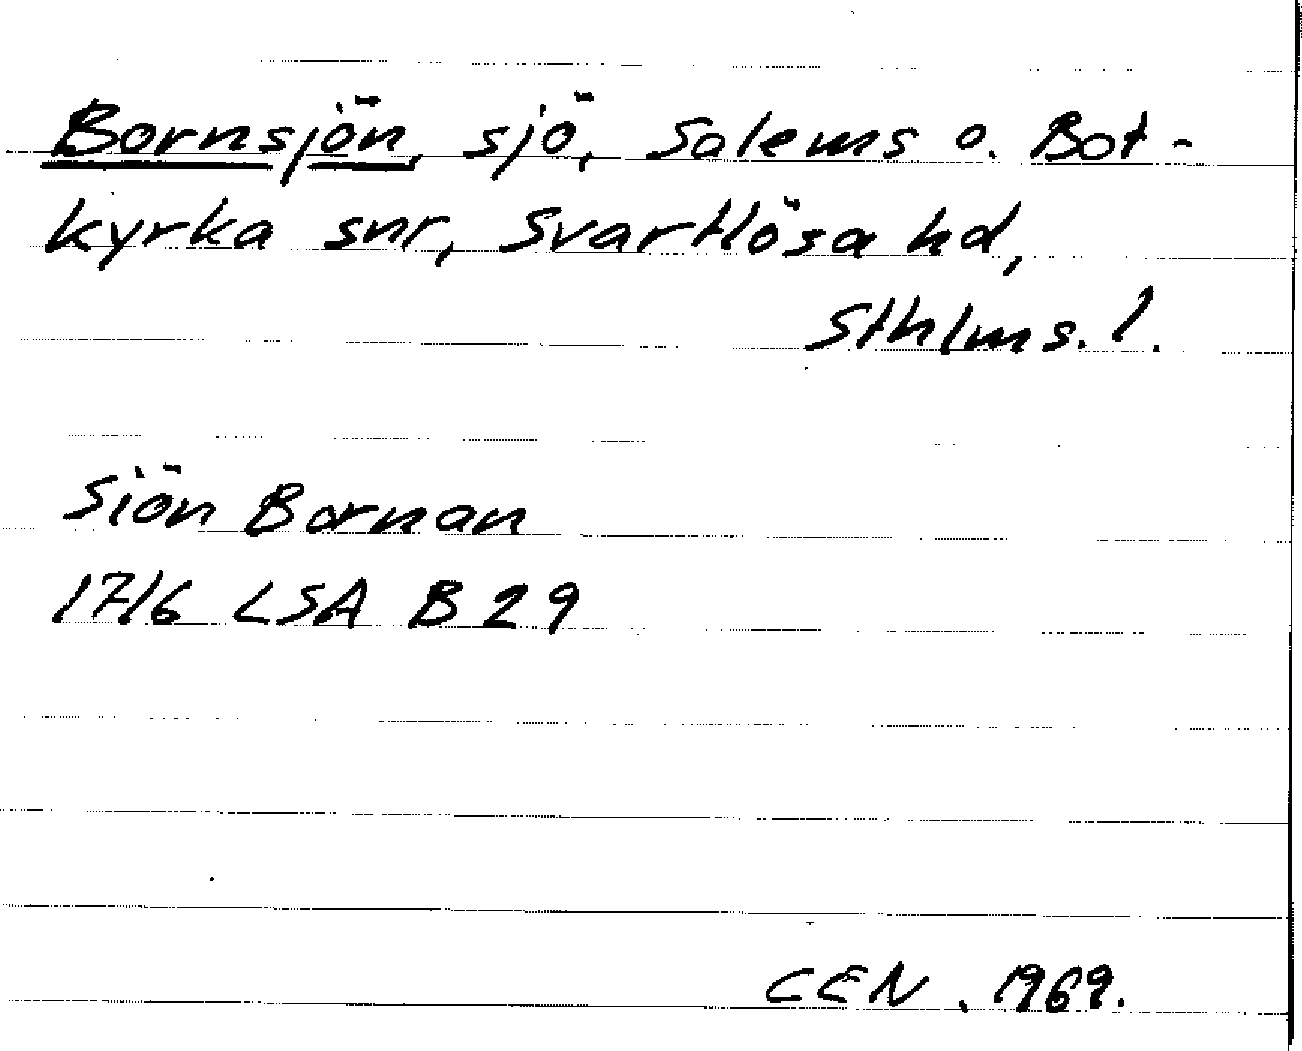 Bornsjön, sjö, Salems o. Bot-
kyrka snr, Svartlösa hd,
Sthlms. l.
Siön Bornan
1716 LSA B 29
CEN. 1969.